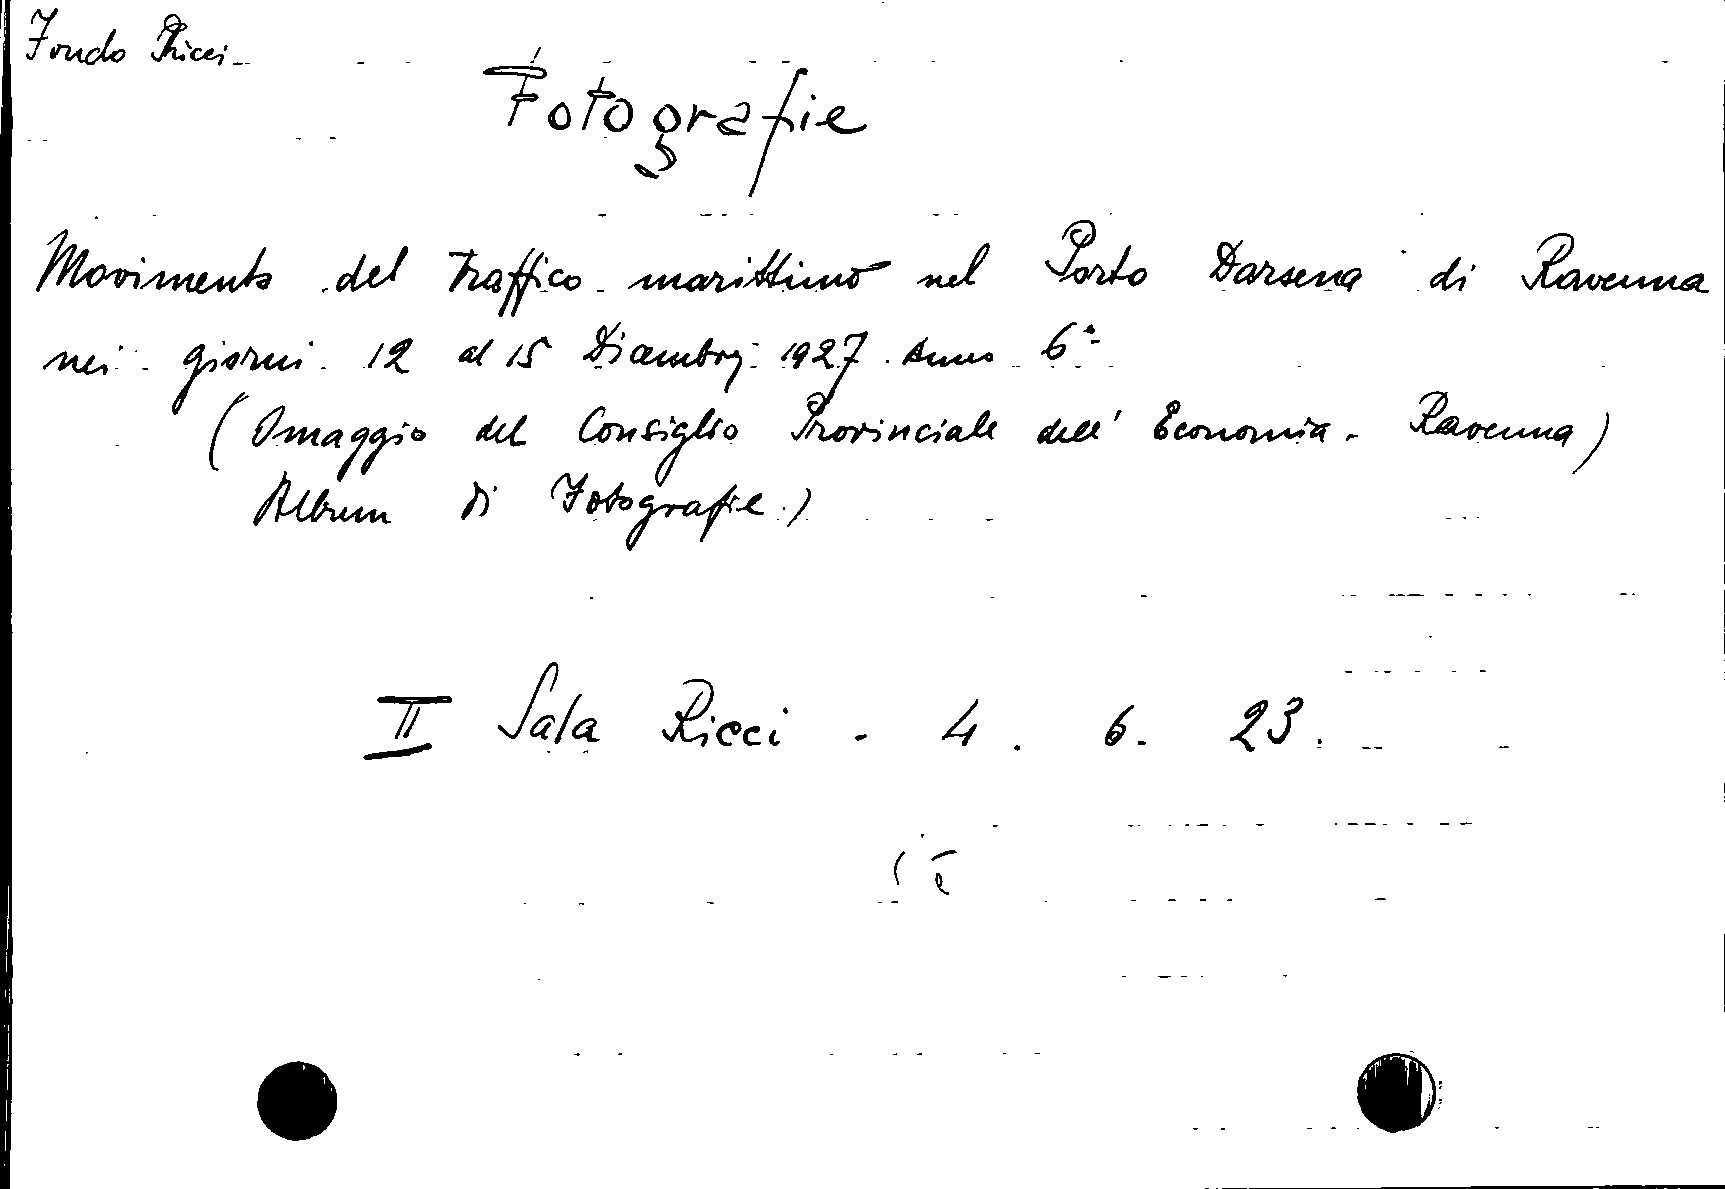 Fondo Ricci -
Fotografie
Movimento del traffico marittimo nel Porto Darsena di Ravenna
nei giorni 12 al 15 Dicembre 1927 Anno 6°-
(Omaggio del Consiglio Provinciale dell' Economia - Ravenna)
Album di Fotografie)
II Sala Ricci - 4. 6. 23.